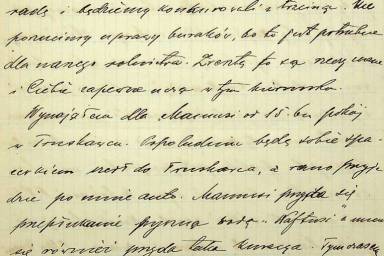 radą i będziemy konkurowali z trzciną. Nie
porzucimy uprawy buraków, bo to jest potrzebne
dla naszego rolnictwa. Zresztą to są
i Ciebie zapewne uczą w tym kierunku.
Wynajęłam dla Marusi od 15. bm pokój
w Truskawcu. Popołudniu będę sobie spa-
cerkiem szedł do Truskawca, a rano przyj-
dzie po mnie auto. Marusi przyda się
przepłukanie pyszną wodą "Naftusi" a mnie
się również przyda taka kuracja. Tymczasem